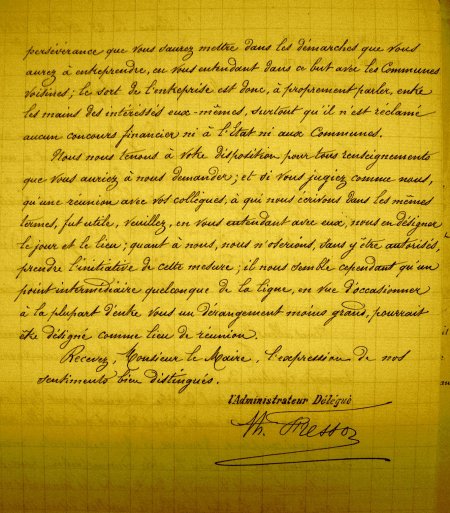 persévérance que vous saurez mettre dans les démarches que vous
aurez à entreprendre, en vous entendant dans ce but avec les Communes
voisines; le sort de l'entreprise est donc, à proprement parler, entre
les mains des intéressés eux-mêmes, surtout qu'il n'est réclamé
aucun concours financier ni à l'État ni aux Communes.
Nous nous tenons à votre disposition pour tous renseignements
que vous auriez à nous demander; et si vous jugiez comme nous,
qu'une réunion avec vos collègues, à qui nous écrivons dans les mêmes
termes, fut utile, veuillez, en vous entendant avec eux, nous en désigner
le jour et le lieu; quant à nous, nous n'oserions, sans y être autorisés,
prendre l'initiative de cette mesure; il nous semble cependant qu'un
point intermédiaire quelconque de la ligne, en vue d'occasionner
à la plupart d'entre vous un dérangement moins grand, pourrait
être désigné comme lieu de réunion.
Recevez, Monsieur le Maire, l'expression de nos
sentiments bien distingués.
l'Administrateur Délégué
Th.